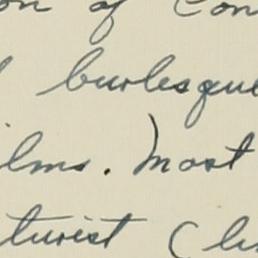 on of Con
burlesque
lms. Most
turist (